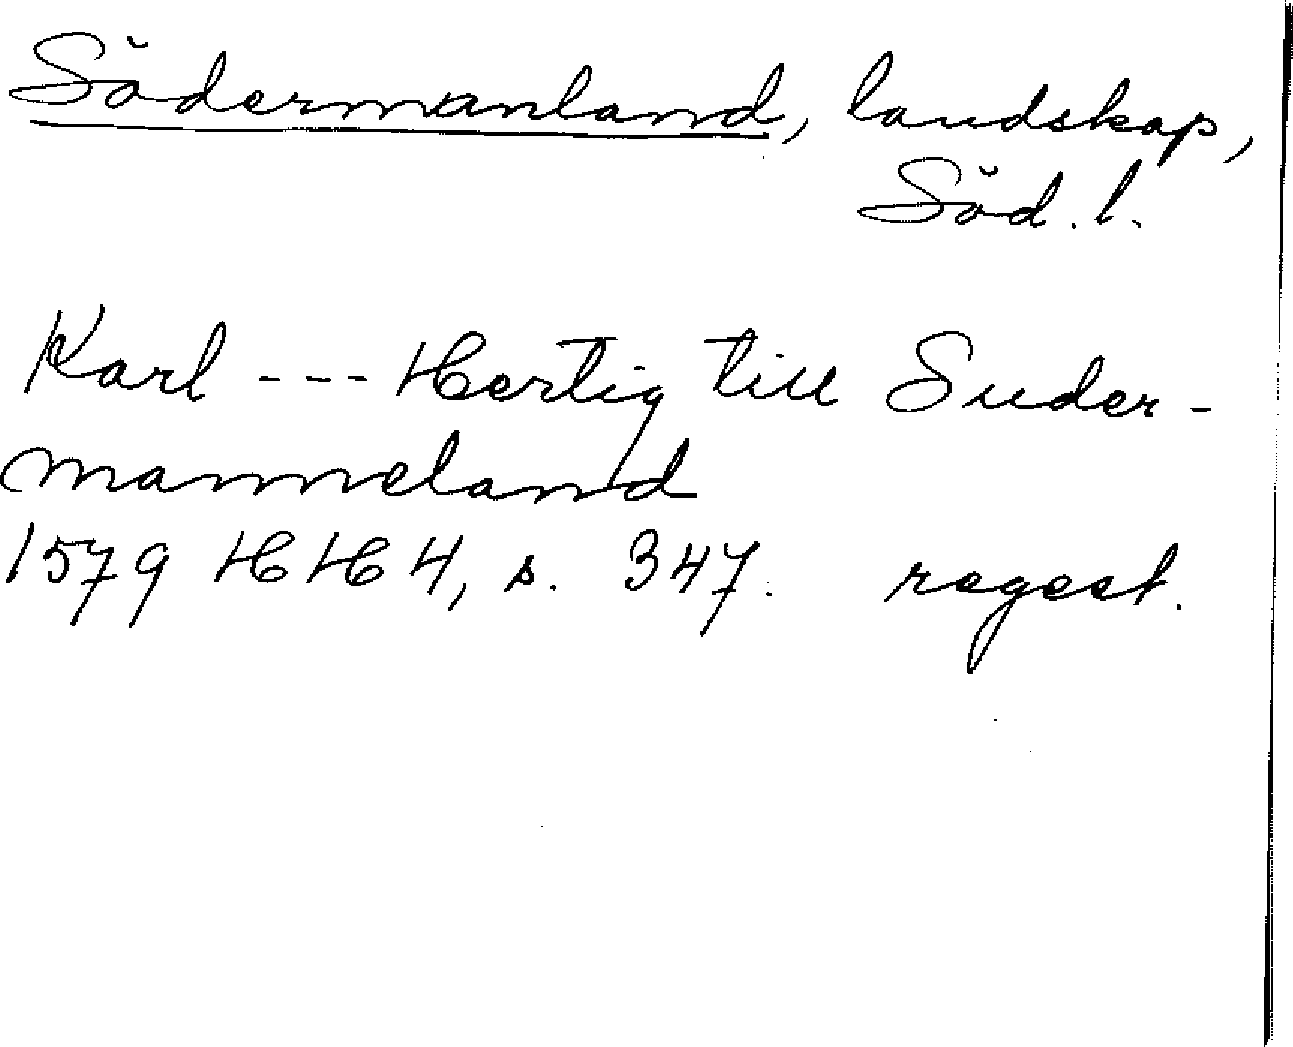 Södermanland, landskap,
Söd. l.
Karl --- Hertig till Suder-
manneland
1579 HH 4, s. 347. regest.